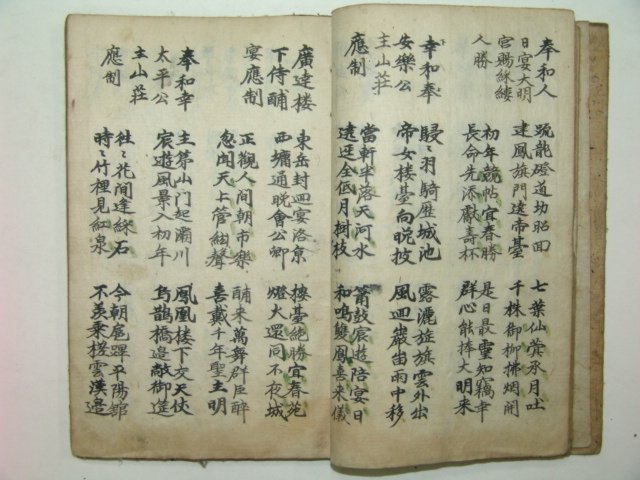 奉和人
日宴大明
宮賜綵縷
人勝
䟽龍磴道切昭回
建風旗門遶帝臺
七葉仙蓂承月吐
千株御柳拂烟開
初年競帖宜春勝
長命先添獻壽杯
是日最靈知竊幸
群心能捧大明來
幸和奉
安樂公
主山莊
應制
駸〻羽騎歷城池
帝女楼臺向晚披
露灑旌旗雲外出
風迴巖岫雨中移
當軒半落天河水
遶逕全低月樹枝
簫鼓宸遊陪宴日
和鳴雙鳳喜來儀
廣達楼
下侍酺
宴應制
東岳封迴宴洛京
西墉通晚會公卿
楼臺絶勝宜春苑
燈火還同不夜城
正觀人間朝市樂
忽聞天上管絃聲
酺來萬舞群臣醉
喜戴千年聖主明
奉和幸
太平公
主山莊
應制
主第山門起灞川
宸遊風景入初年
鳳凰楼下交天仗
烏鵲橋邊敞御筵
往〻花間逢綵石
時〻竹裡見紅泉
今朝扈蹕平陽舘
不羨乘槎雲漢邉